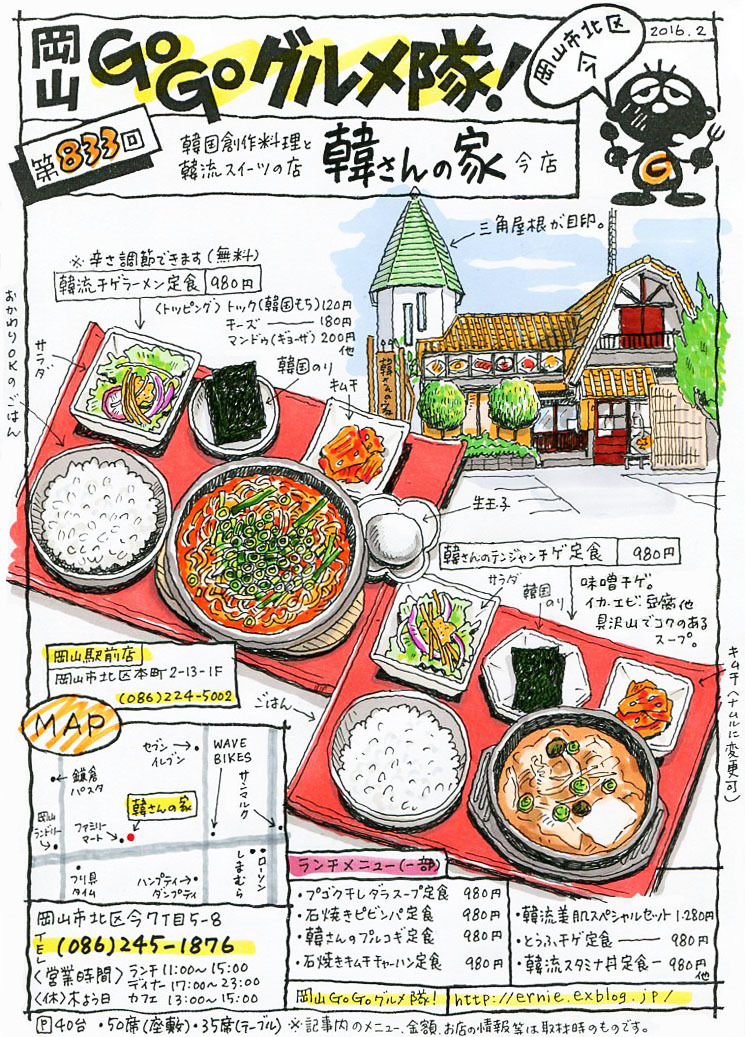 岡山 GoGoグルメ隊!
岡山市北区
今
2016.2
第833回
韓国創作料理と
韓流スイーツの店
韓さんの家 今店
三角屋根が目印。
※辛さ調節できます(無料)
韓流チゲラーメン定食 980円
〈トッピング〉トック(韓国もち)120円
チーズ 180円
マンドゥ(ギョーザ)200円
他
おかわりOKのごはん
サラダ
韓国のり
キムチ
韓さんの家
生玉子
韓さんのテンジャンチゲ定食 980円
サラダ
韓国のり
味噌チゲ。
イカ.エビ.豆腐他
具沢山でコクのある
スープ。
キムチ(ナムルに変更可)
ごはん
岡山駅前店
岡山市北区本町2-13-1F
(086)224-5002
MAP
セブンイレブン
WAVE
BIKES
サンマルク
鎌倉
パスタ
韓さんの家
岡山
ランドリー
ファミリー
マート
フリ具
タイム
ハンプティ
ダンプティ
しまむら
ローソン
岡山市北区今7丁目5-8
TEL (086)245-1876
〈営業時間〉ランチ11:00〜15:00
ディナー17:00〜23:00
〈休〉木よう日 カフェ 13:00〜15:00
ランチメニュー(一部)
・プゴク干しダラスープ定食 980円
・石焼きビビンパ定食 980円
・韓さんのプルコギ定食 980円
・石焼きキムチチャーハン定食 980円
・韓流美肌スペシャルセット 1.280円
・とうふチゲ定食 980円
・韓流スタミナ丼定食 980円
他
岡山GoGoグルメ隊! http://ernie.exblog.jp/
P 40台 ・50席(座敷)・35席(テーブル) ※記事内のメニュー、金額、お店の情報等は取材時のものです。